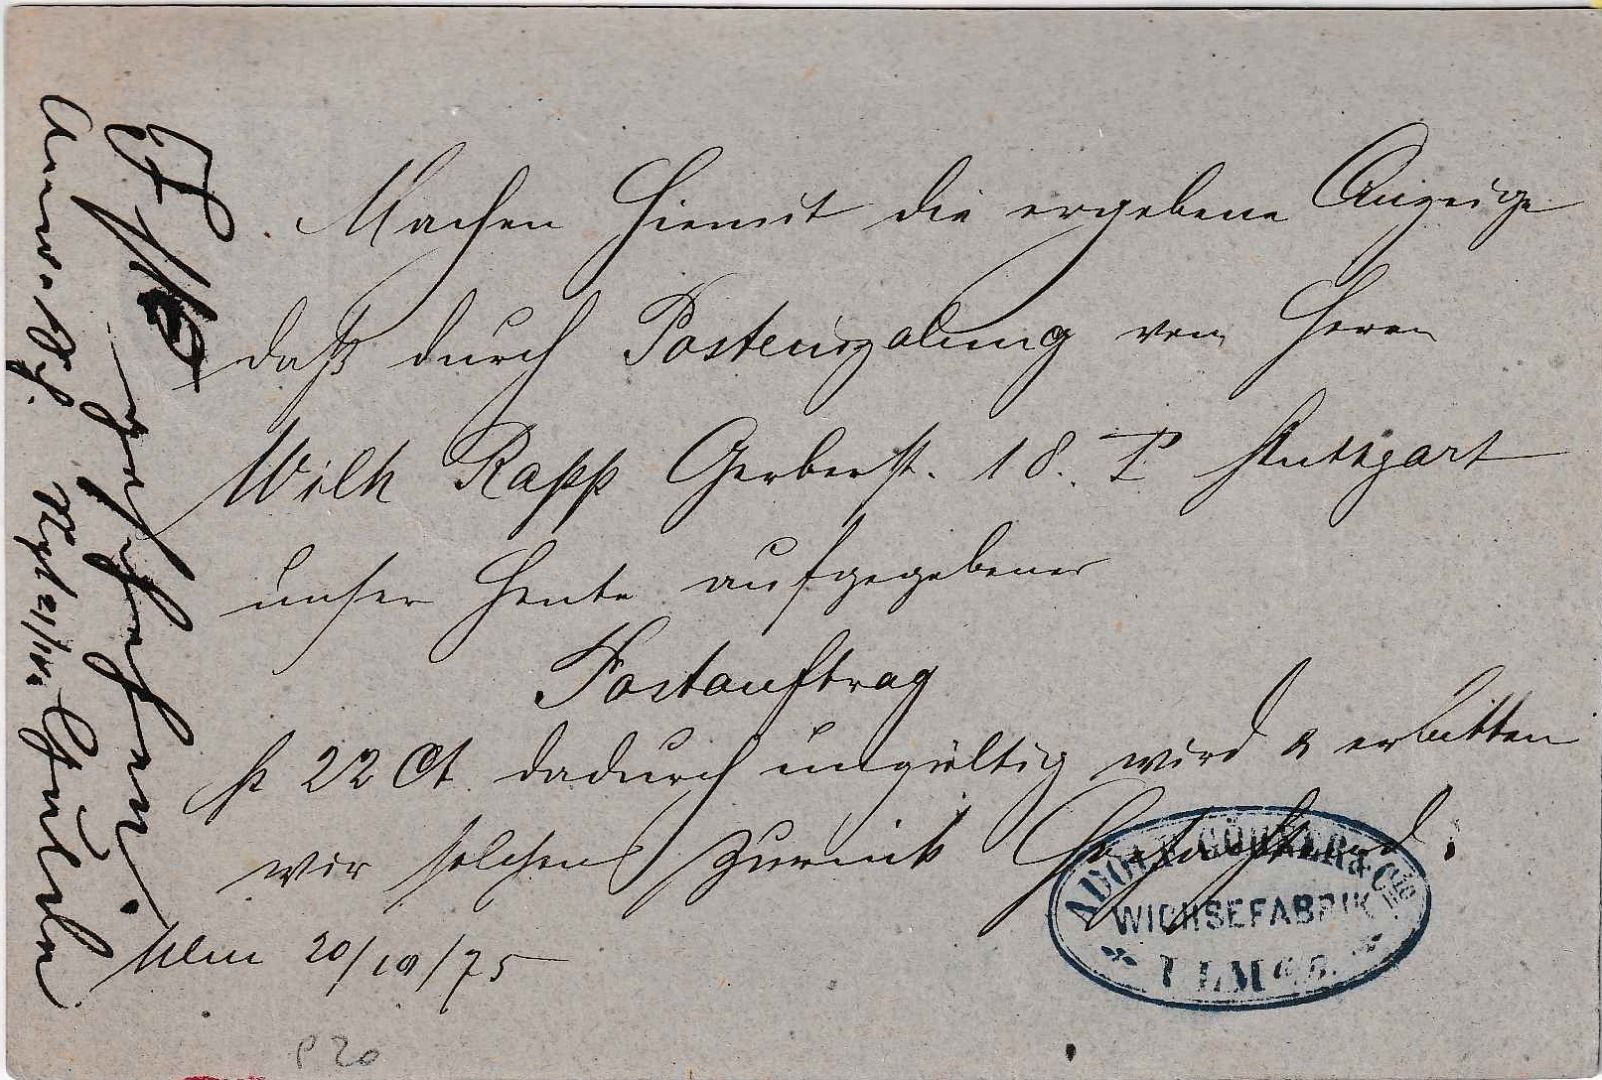 Machen hiemit die ergebene Anzeige
daß durch Posteinzalung von Herrn
Wilh Rapp Gerberst. 18. I Stuttgart
unser heute aufgegebener
Postauftrag
pr 22 Ct. dadurch ungültig wird & erbitten
wir solchen zurück Hochachtend.
Ulm 20/10/75
ADOLF & Cie
WICHSEFABRIK
ULM a/D.
P 20